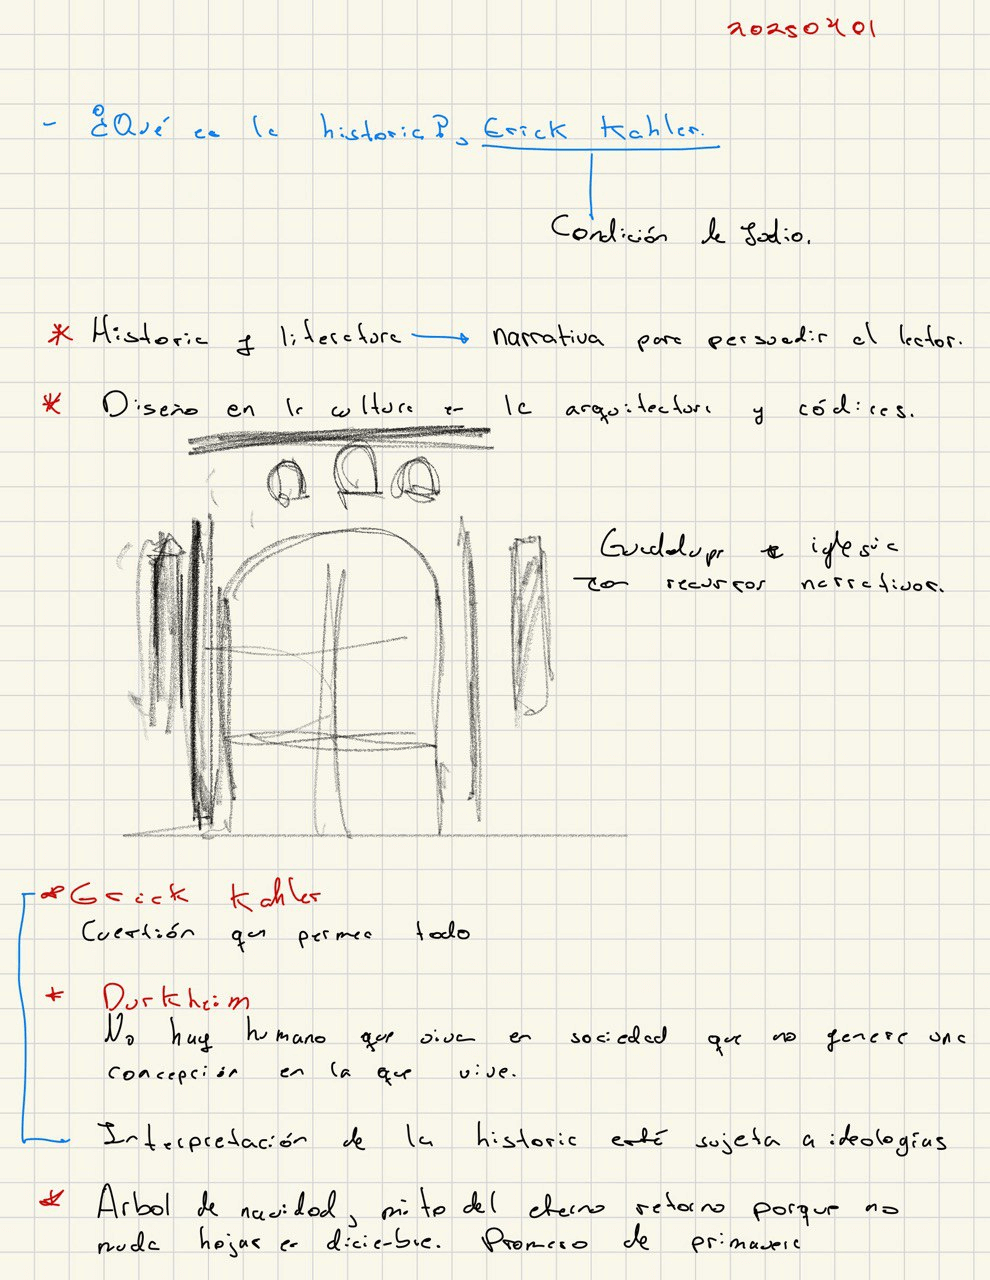 20250401
- ¿Qué es la historia?, Erick Kahler.
Condición de Judio.
* Historia y literatura → narrativa para persuadir al lector.
* Diseño en la cultura en la arquitectura y códices.
Guadalupe iglesia
con recursos narrativos.
* Erick Kahler
Cuestión que permea todo
* Durkheim
No hay humano que viva en sociedad que no genere una
concepción en la que vive.
Interpretación de la historia está sujeta a ideologías
* Arbol de navidad, mito del eterno retorno porque no
muda hojas en diciembre. Promesa de primavera